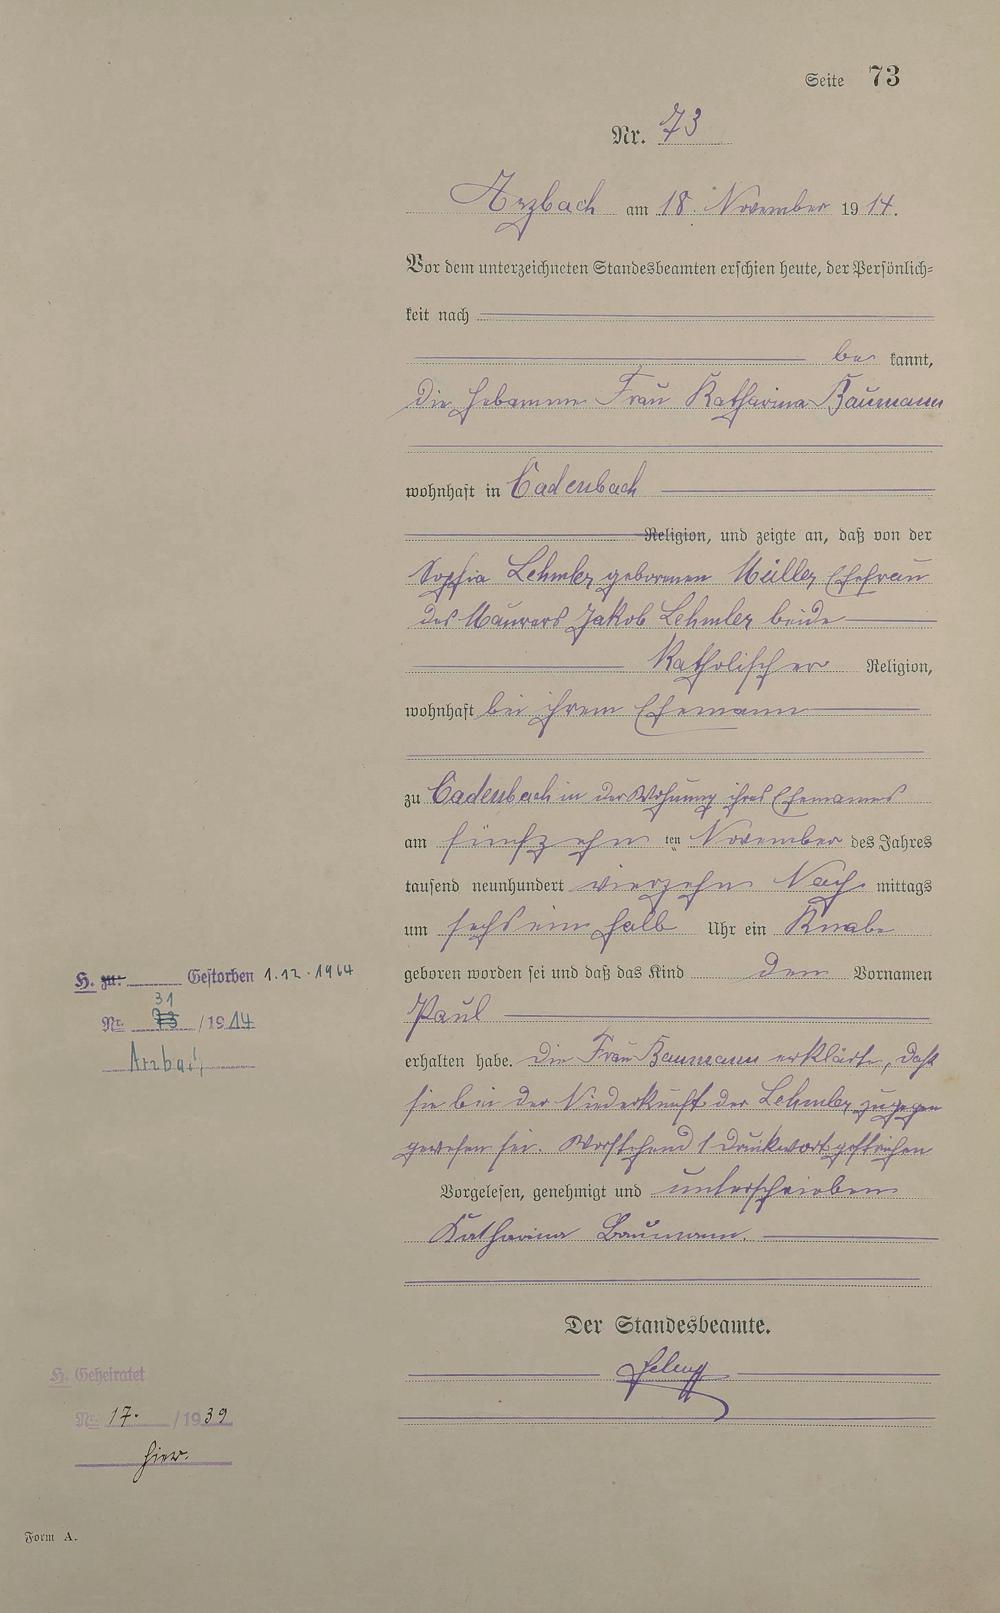 Seite 73
Nr. 73
Arzbach am 18. November 1914.
Vor dem unterzeichneten Standesbeamten erschien heute, der Persönlich-
keit nach
be kannt,
die Hebamme Frau Katharina Baumann
wohnhaft in Cadenbach
Religion, und zeigte an, daß von der
Sophia Lehmler geborenen Müller Ehefrau
des Maurers Jakob Lehmler beide
Katholischer Religion,
wohnhaft bei ihrem Ehemann
zu Cadenbach in der Wohnung ihres Ehemannes
am fünfzehn ten November des Jahres
tausend neunhundert vierzehn Nach mittags
um sechs ein halb Uhr ein Knabe
geboren worden sei und daß das Kind den Vornamen
Paul
erhalten habe. Die Frau Baumann erklärte, daß
sie bei der Niederkunft der Lehmler zugegen
gewesen sei. Vorstehend 1 Druckwort gestrichen
Vorgelesen, genehmigt und unterschrieben
Katharina Baumann.
Der Standesbeamte.
H. zu: Gestorben 1.12.1964
31
Nr. 73 /1914
Arzbach
H. Geheiratet
Nr. 17. /1939
hier.
Form A.